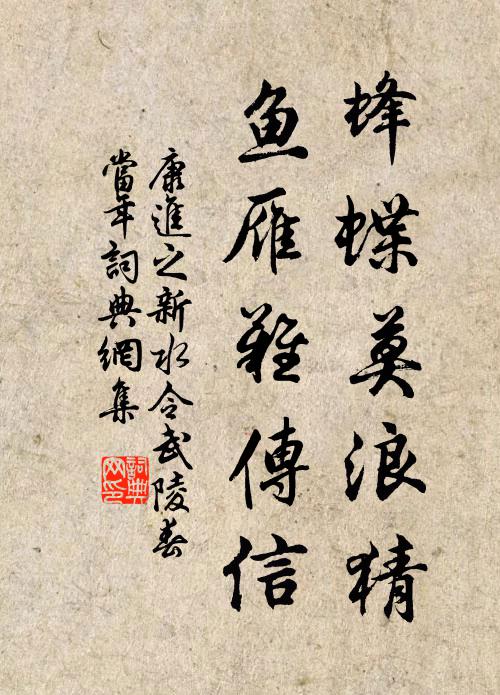 蜂蝶莫浪猜
鱼雁難傳信
康進之新水令武陵春
當年詞典網集
詞典网印